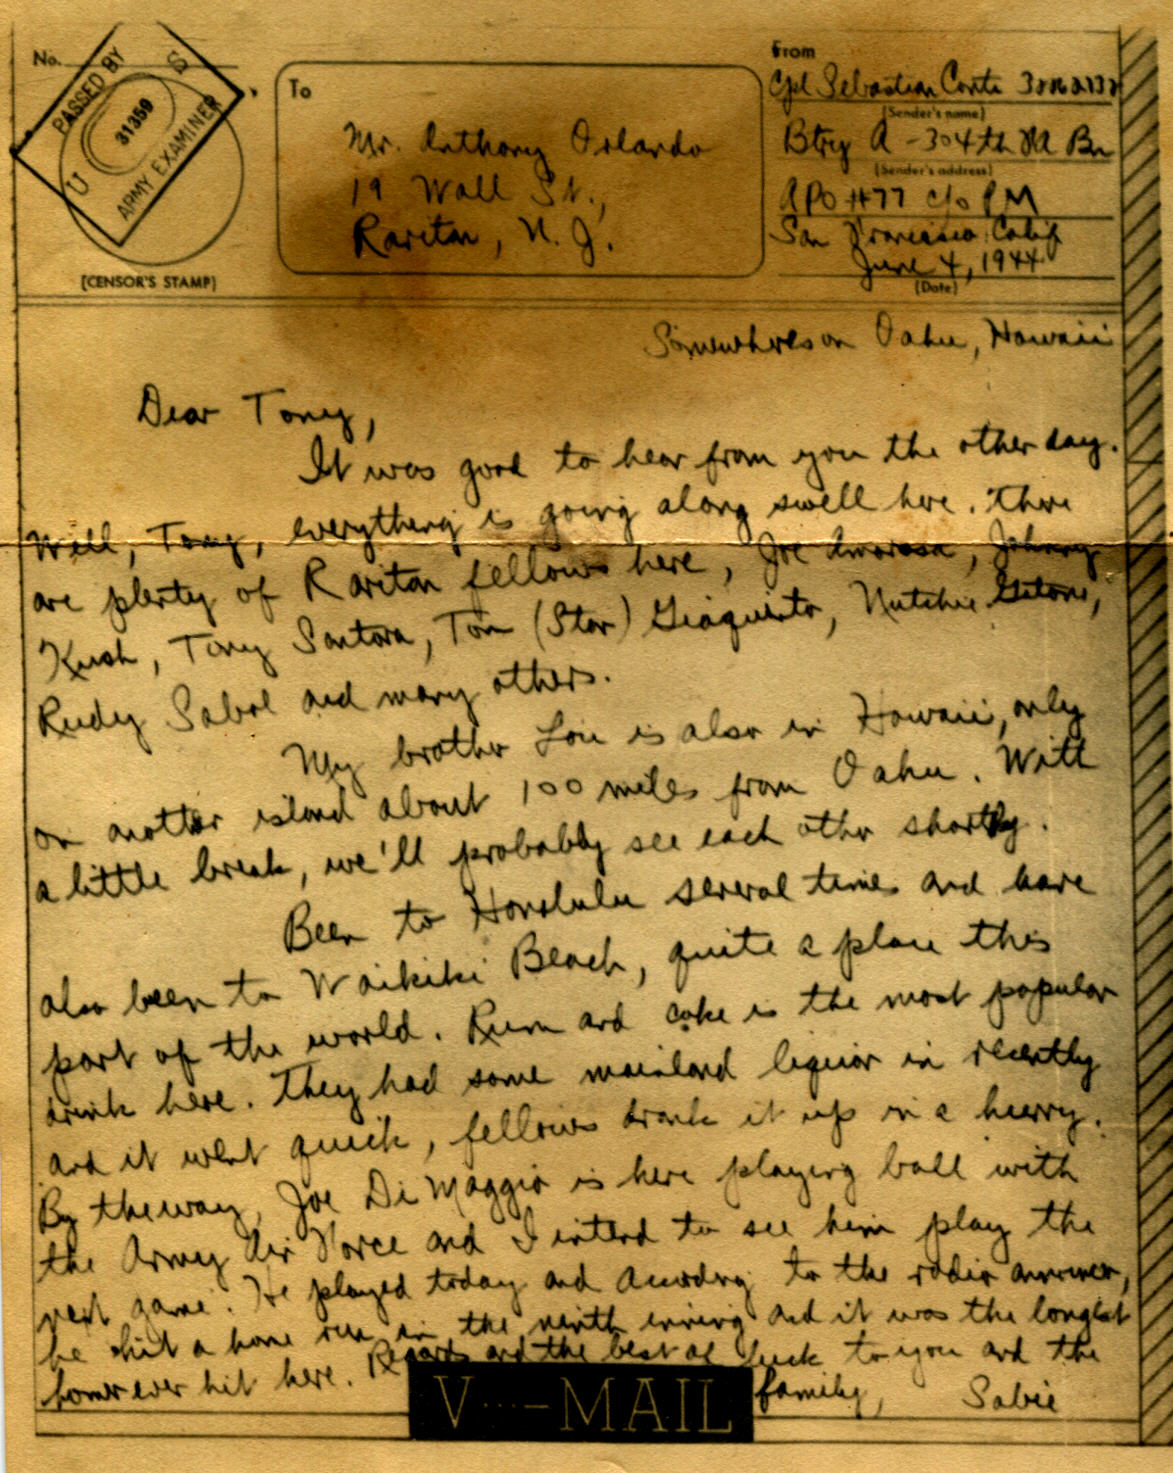 No.
PASSED BY
U S
31359
ARMY EXAMINER
(CENSOR'S STAMP)
To
Mr. Anthony Orlando
19 Wall St.,
Raritan, N. J.
From
Cpl Sebastian Conti
(Sender's name)
Btry A - 304th FA Bn
(Sender's address)
APO #77 c/o PM
San Francisco Calif
June 4, 1944
(Date)
Somewheres on Oahu, Hawaii
Dear Tony,
It was good to hear from you the other day.
Well, Tony, everything is going along swell here. There
are plenty of Raritan fellows here, Joe Amorosa, Johnny
Kush, Tony Santora, Tom (Star) Giaquinto, Nutchie
Rudy Sabol and many others.
My brother Lou is also in Hawaii, only
on another island about 100 miles from Oahu. With
a little break, we'll probably see each other shortly.
Been to Honolulu several times and have
also been to Waikiki Beach, quite a place this
part of the world. Rum and coke is the most popular
drink here. They had some mainland liquor in recently
and it went quick, fellows drank it up in a hurry.
By the way, Joe Di Maggio is here playing ball with
the Army Air Force and I intend to see him play the
next game. He played today and according to the radio announcer,
he hit a home run in the ninth inning and it was the longest
homer ever hit here. Regards and the best of luck to you and the
family, Sabie
V···—MAIL